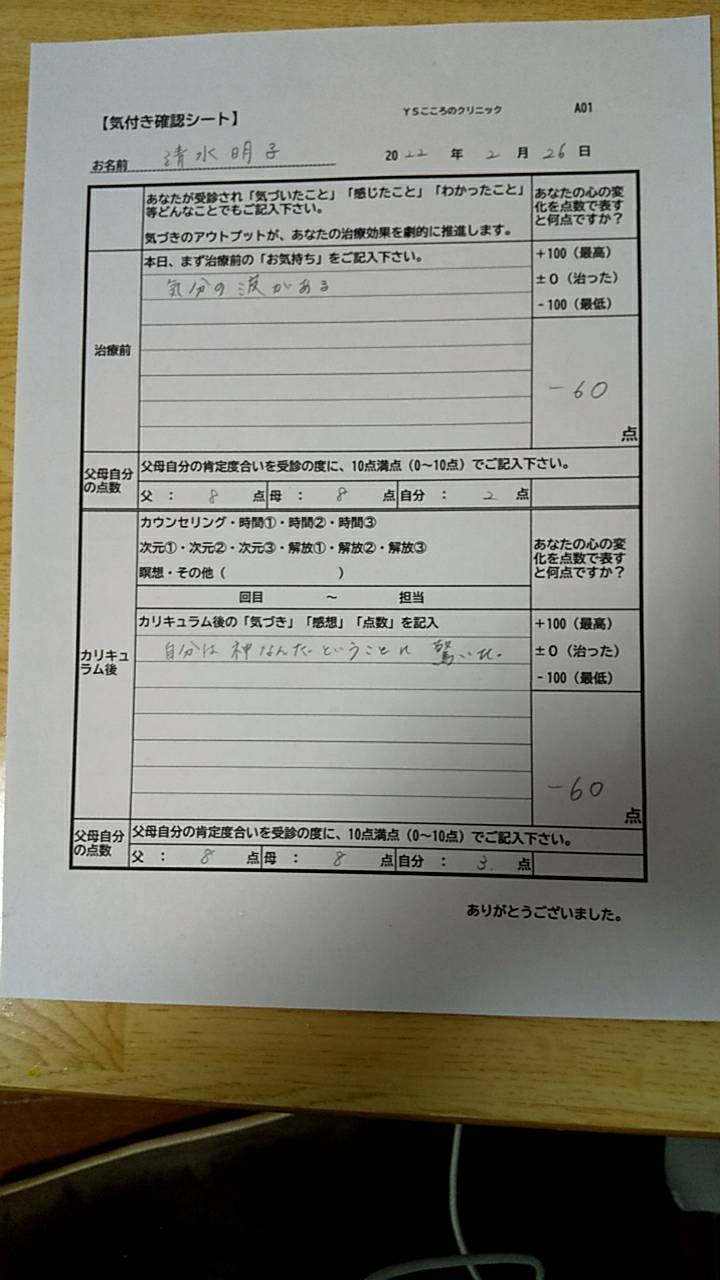 【気付き確認シート】
YSこころのクリニック
A01
お名前 清水明子
2022年2月26日
あなたが受診され「気づいたこと」「感じたこと」「わかったこと」
等どんなことでもご記入下さい。
気づきのアウトプットが、あなたの治療効果を劇的に推進します。
あなたの心の変
化を点数で表す
と何点ですか？
治療前
本日、まず治療前の「お気持ち」をご記入下さい。
気分の波がある
+100（最高）
±0（治った）
-100（最低）
-60
点
父母自分
の点数
父母自分の肯定度合いを受診の度に、10点満点（0〜10点）でご記入下さい。
父 ： 8 点 母 ： 8 点 自分 ： 2 点
カリキュ
ラム後
カウンセリング・時間①・時間②・時間③
次元①・次元②・次元③・解放①・解放②・解放③
瞑想・その他（ ）
回目 〜 担当
あなたの心の変
化を点数で表す
と何点ですか？
カリキュラム後の「気づき」「感想」「点数」を記入
自分は神なんだということに驚いた。
+100（最高）
±0（治った）
-100（最低）
-60
点
父母自分
の点数
父母自分の肯定度合いを受診の度に、10点満点（0〜10点）でご記入下さい。
父 ： 8 点 母 ： 8 点 自分 ： 3 点
ありがとうございました。